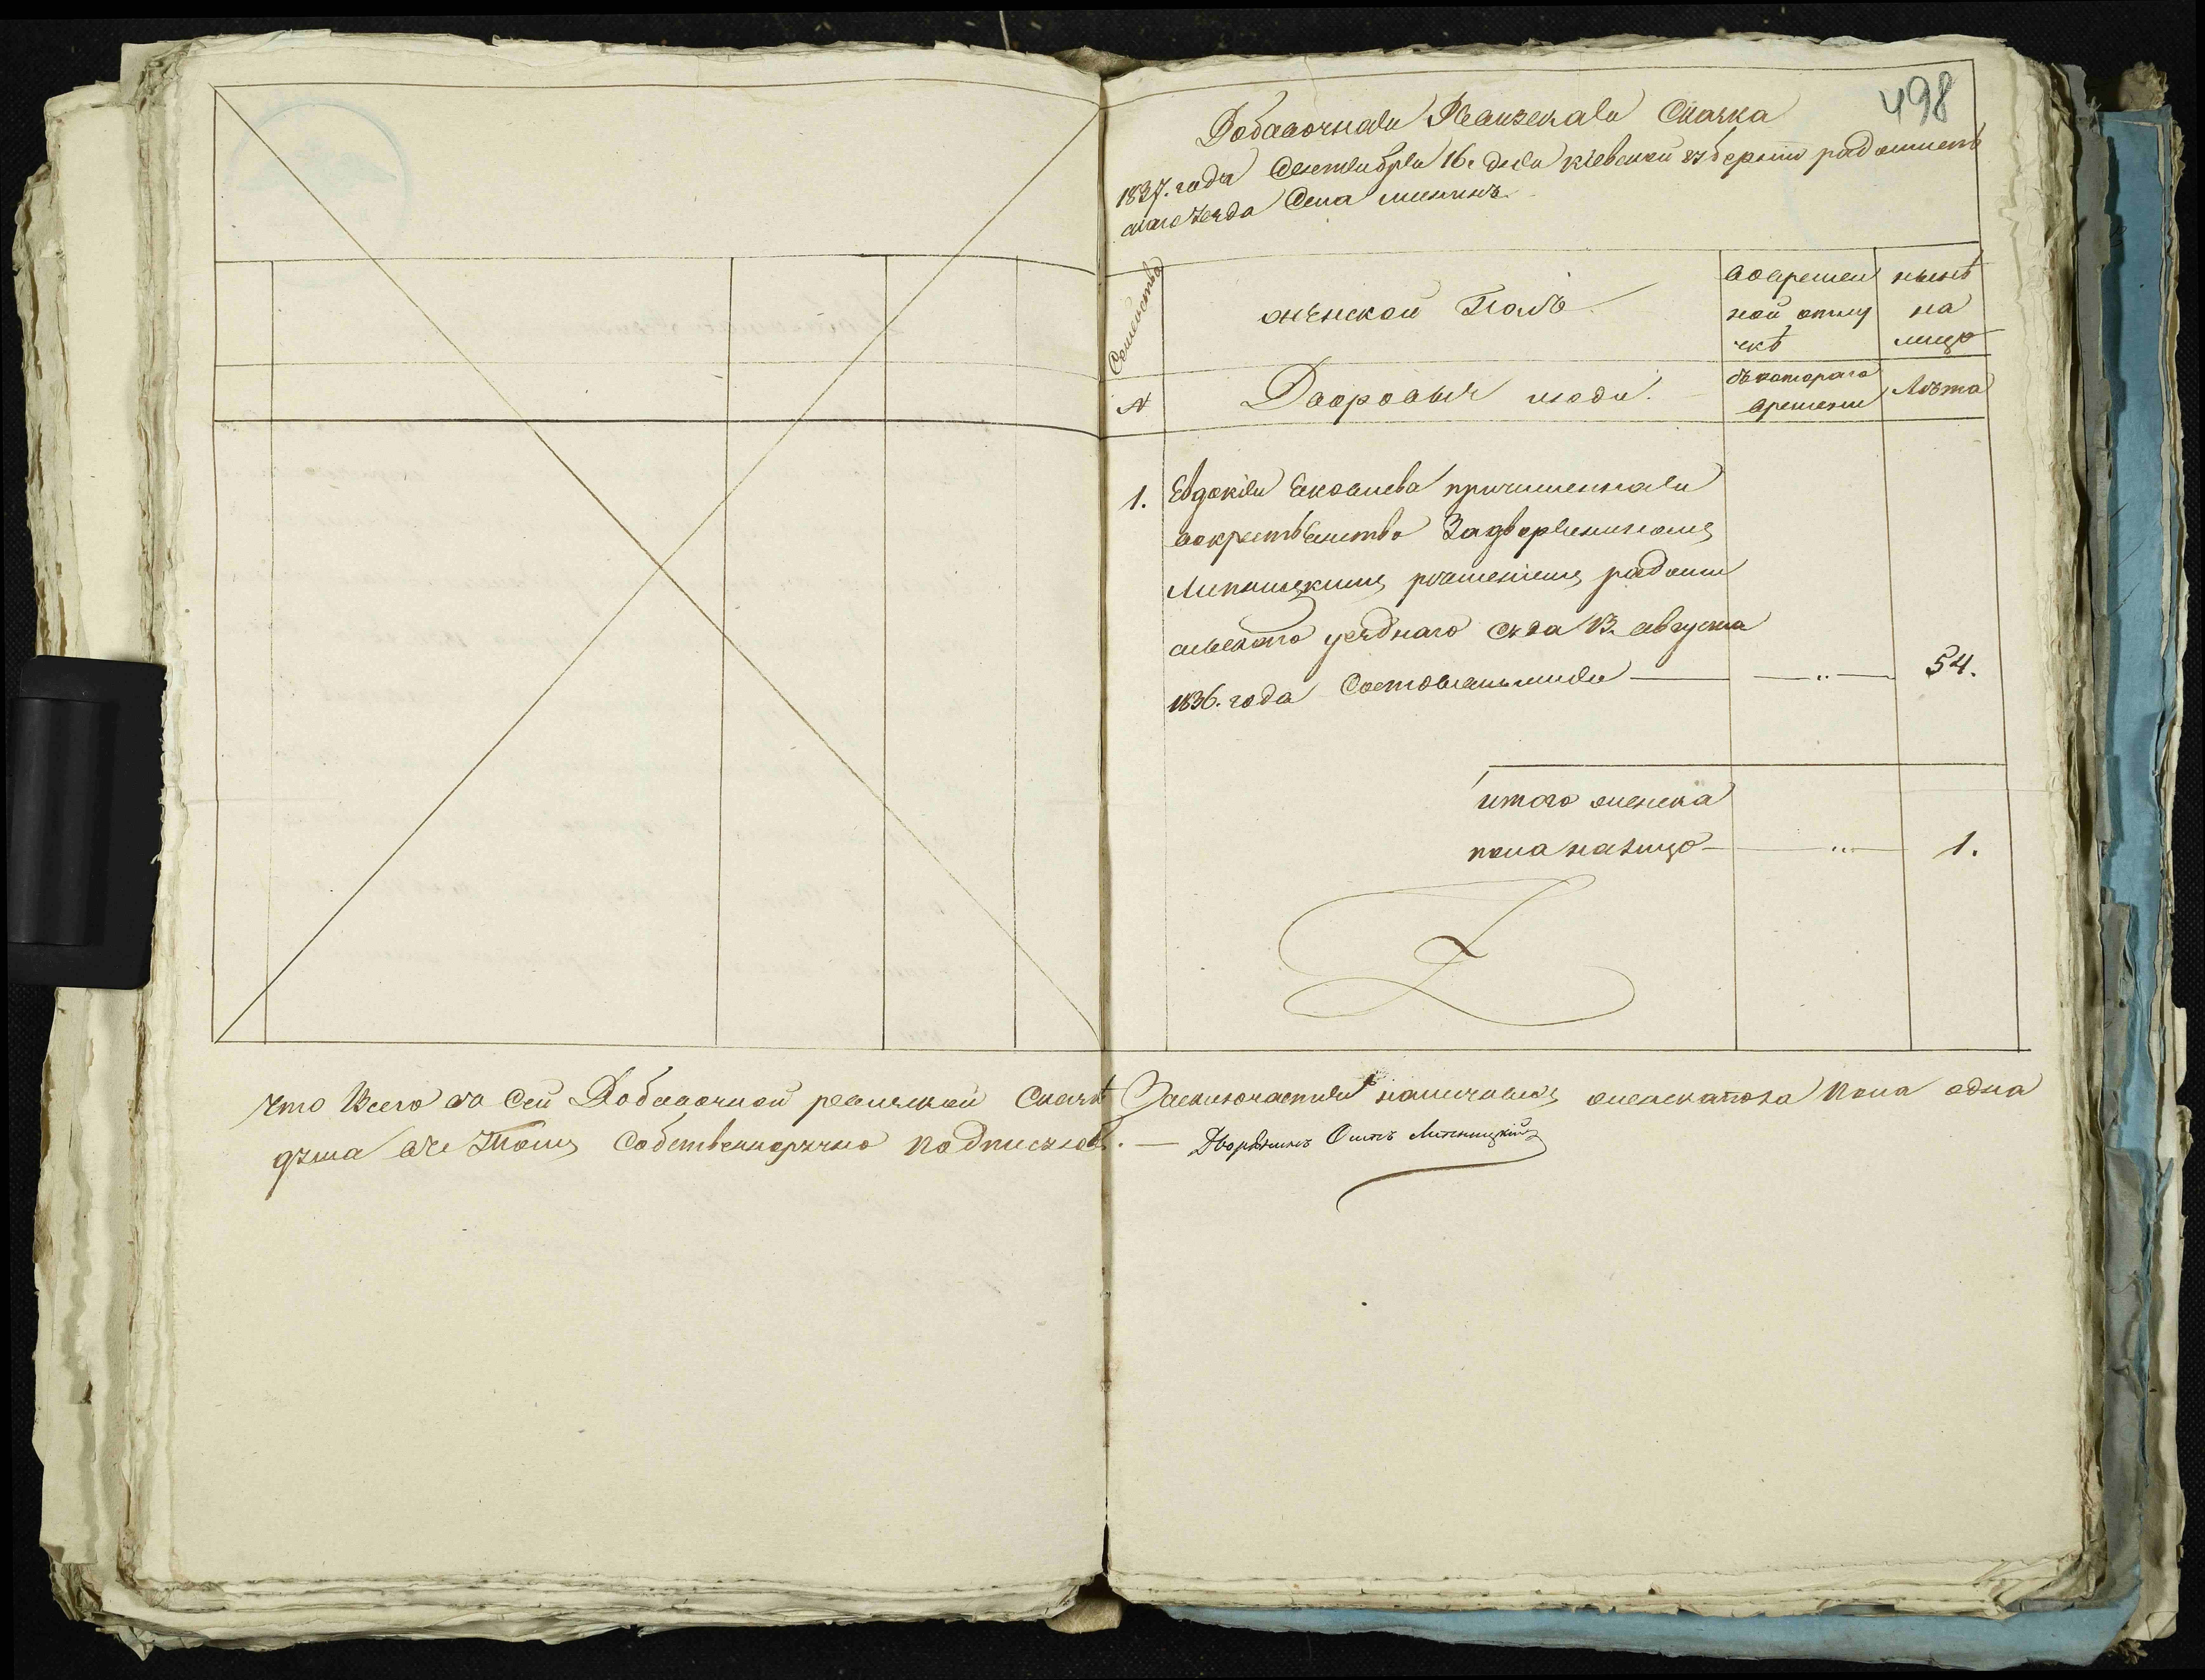 498
Добавочная Ревизская Сказка
1837. года Сентября 16. дня кіевской губерніи радомысль
скаго уезда Села
Семейства
женской Полъ
вовремен
ной отлу
чкѣ
нынѣ
на
лицо
N
Дворовыя люди.
съкотораго
времени
Лѣта
1. Евдокія Яковлева причисленная
вокрестьянство Задворяниномъ
Липницкимъ решеніемъ радоми
сльскаго уезднаго Суда 13. августа
1836. года Состоявшимся — „ — 54.
итого женска
пола налицо — „ — 1.
что Всего во Сей Добавочной ревизской Сказкѣ Заключается наличныхъ женскапола Пола одна
душа вче Томъ Собственноручно подписуюсь. — Дворянинъ Липницкій